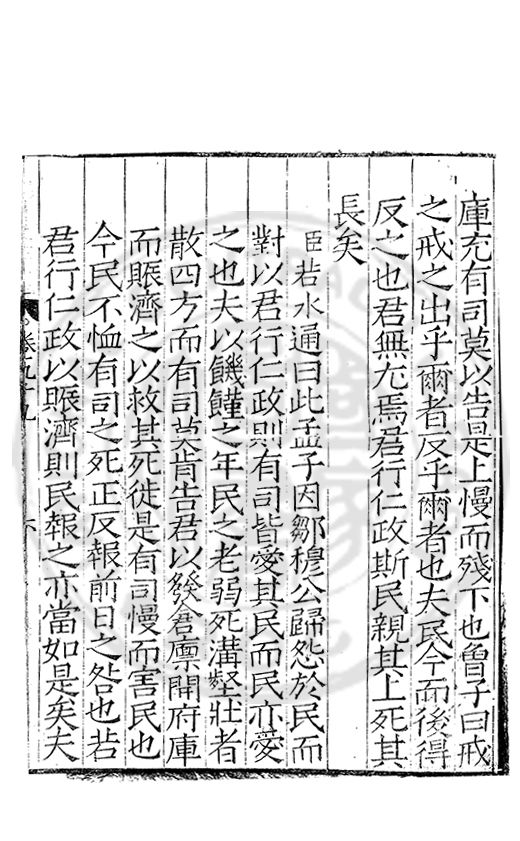 庫充有司莫以告是上慢而殘下也曾子曰戒
之戒之出乎爾者反乎爾者也夫民今而後得
反之也君無尤焉君行仁政斯民親其上死其
長矣
臣若水通曰此孟子因鄒穆公歸怨於民而
對以君行仁政則有司皆愛其民而民亦愛
之也夫以饑饉之年民之老弱死溝壑壯者
散四方而有司莫肯告君以發倉廪開府庫
而賑濟之以救其死徙是有司慢而害民也
今民不恤有司之死正反報前日之咎也若
君行仁政以賑濟則民報之亦當如是矣夫
卷五十九